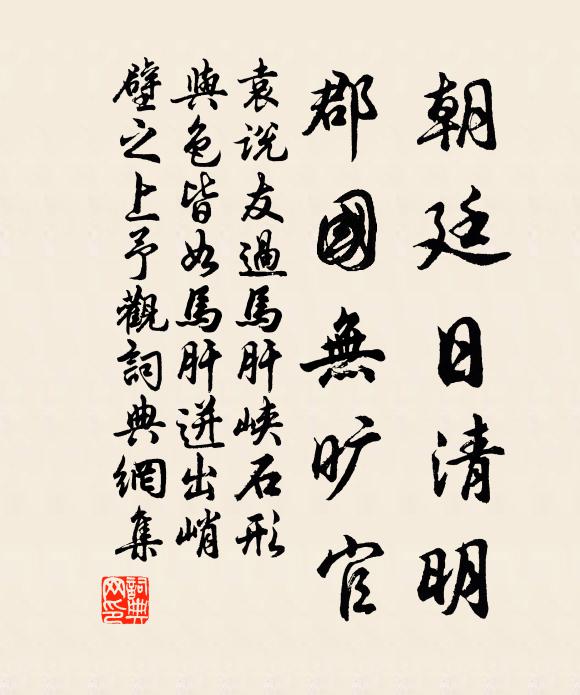 朝廷日清明
郡國無旷官
袁说友過馬肝峽石形
與色皆如馬肝迸出峭
壁之上予觀詞典網集
詞典网印